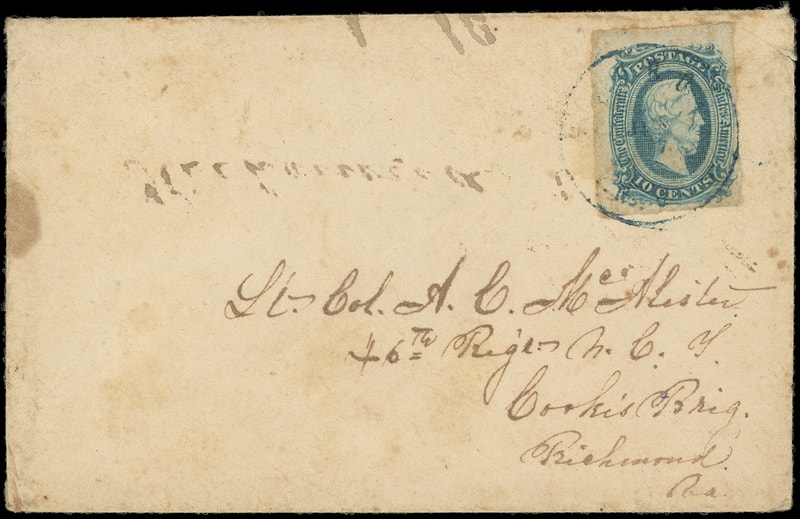 POSTAGE
The Confederate States of America
10 CENTS
Lt Col. A. C. McAlister
46th Regt N. C. T
Cooke's Brig.
Richmond.
Va.